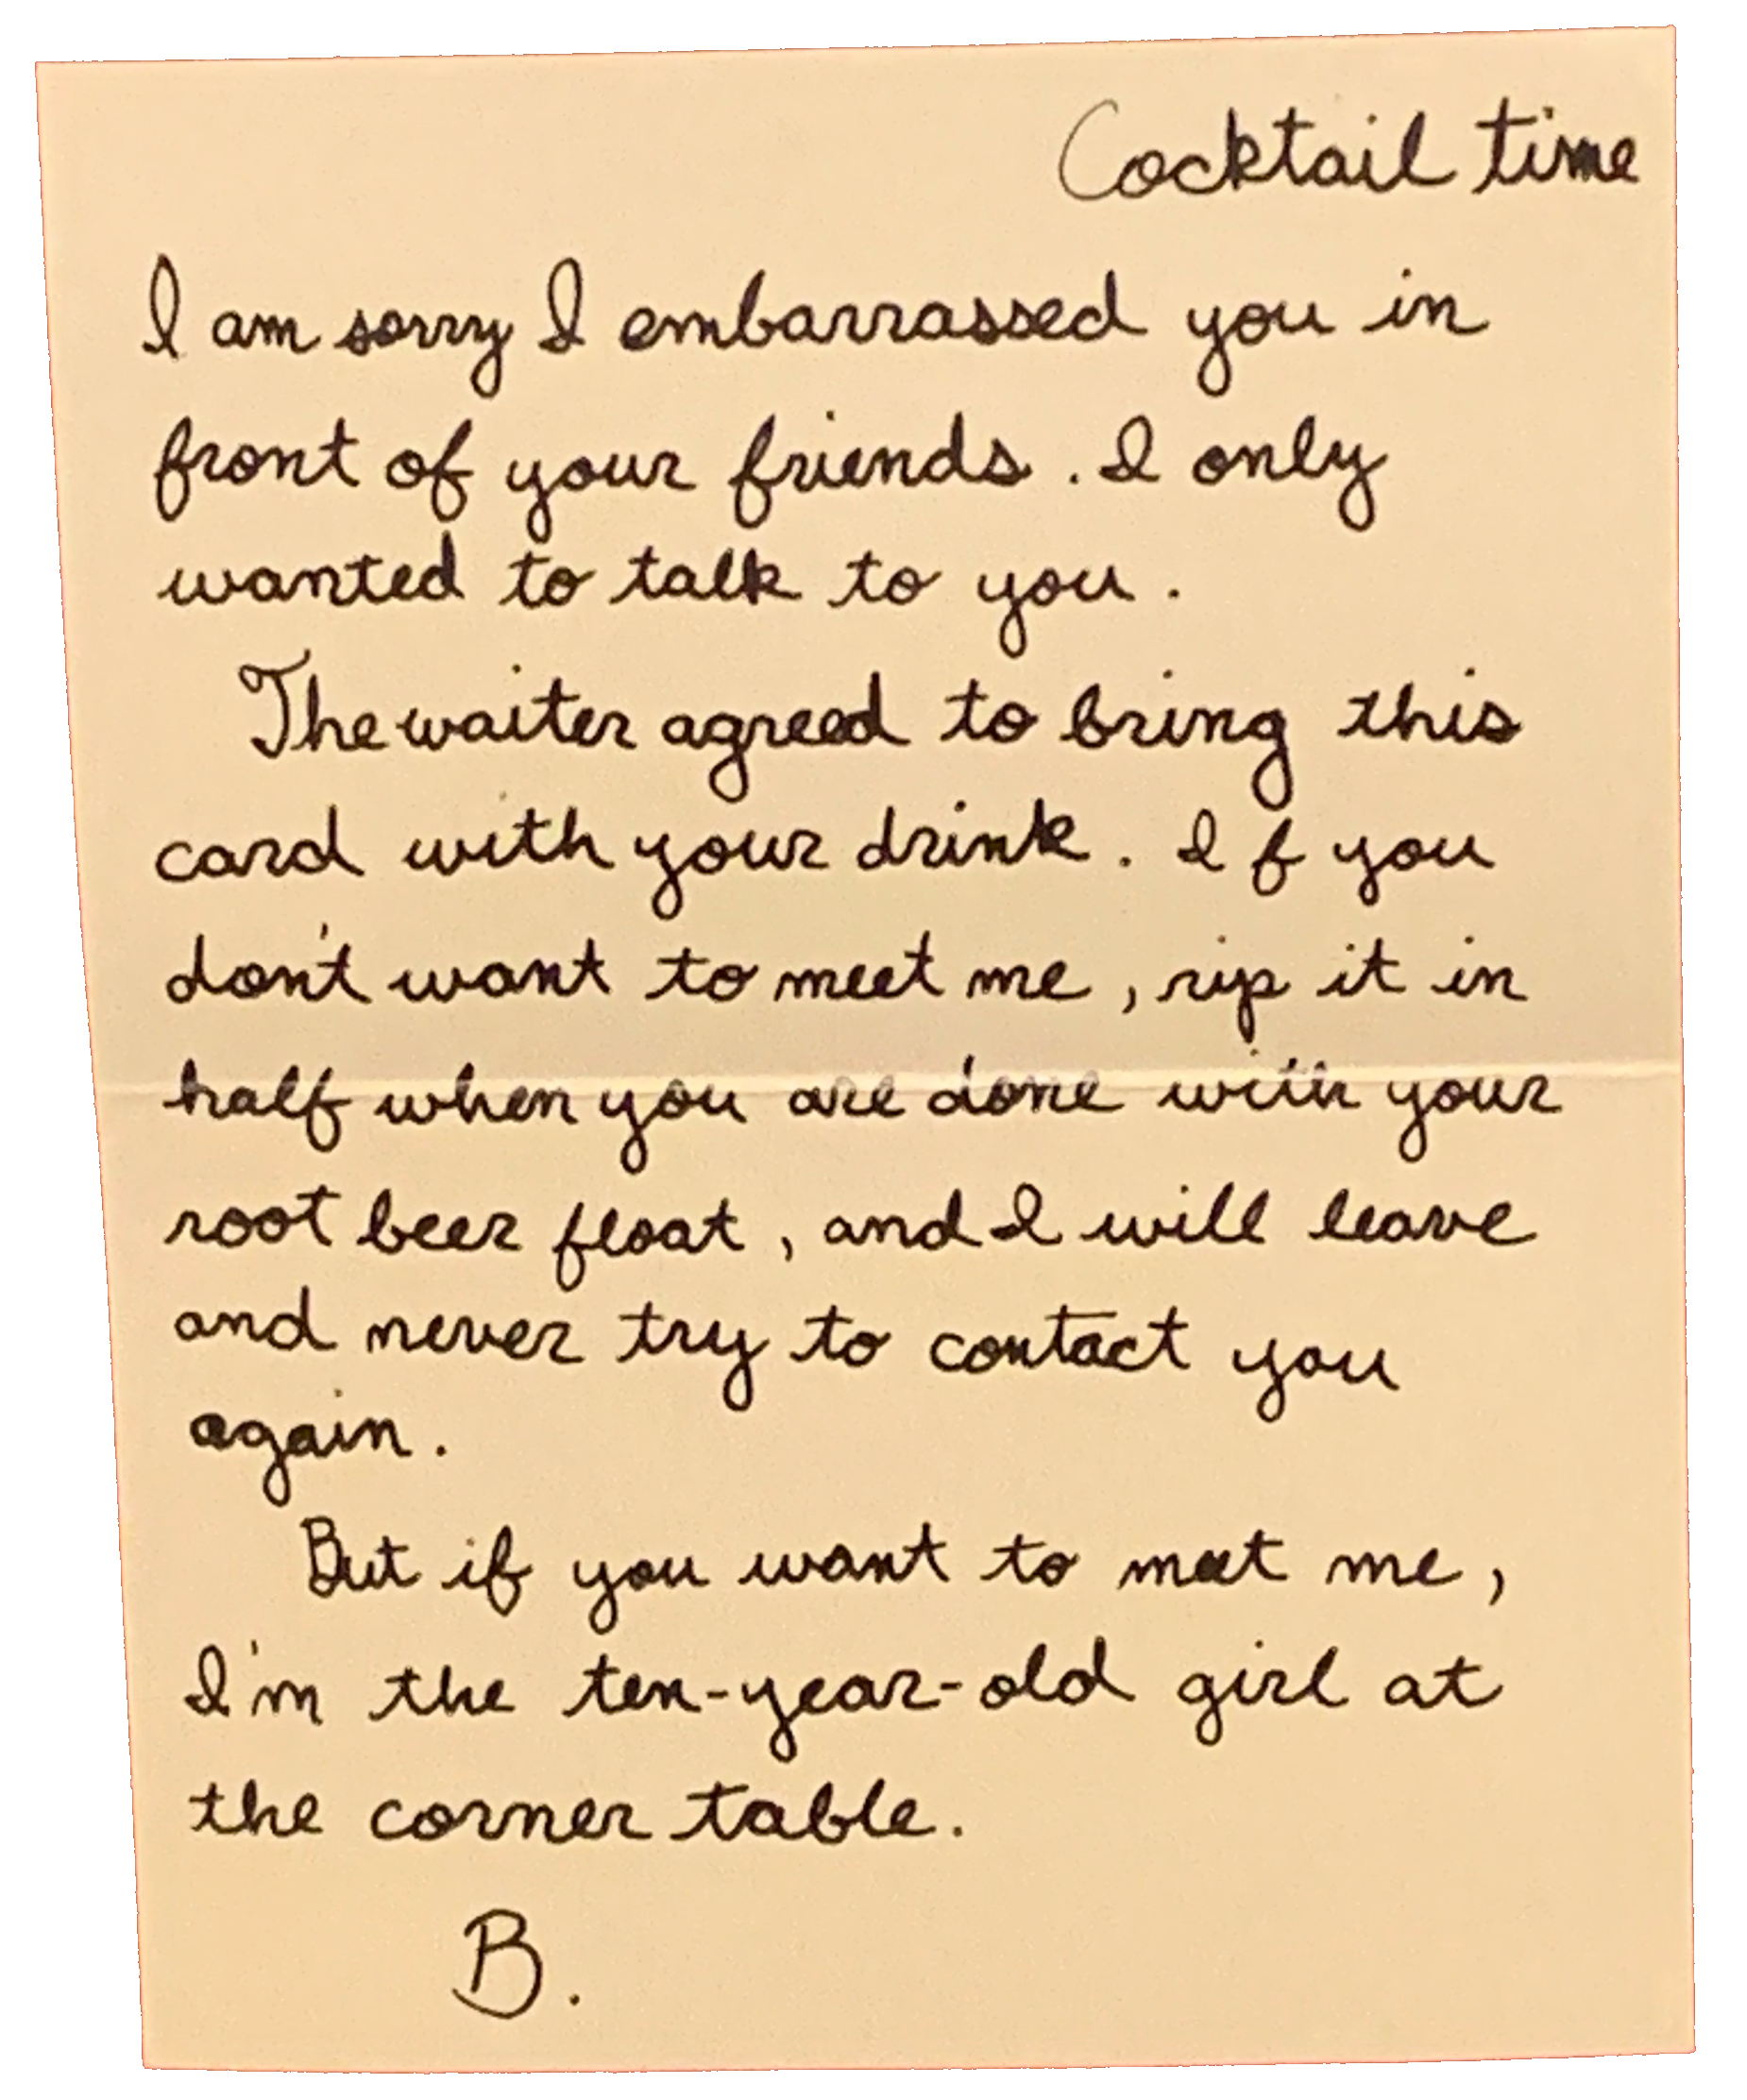 Cocktail time
I am sorry I embarrassed you in
front of your friends. I only
wanted to talk to you.
The waiter agreed to bring this
card with your drink. If you
don't want to meet me, rip it in
half when you are done with your
root beer float, and I will leave
and never try to contact you
again.
But if you want to meet me,
I'm the ten-year-old girl at
the corner table.
B.